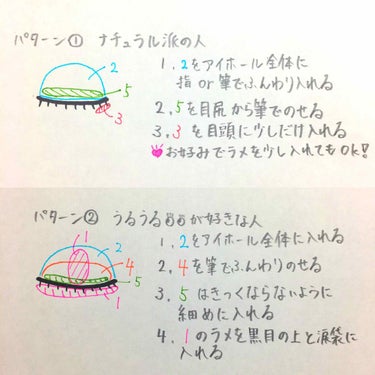 パターン① ナチュラル派の人
1, 2をアイホール全体に
指 or 筆でふんわり入れる
2, 5を目尻から筆でのせる
3, 3を目頭に少しだけ入れる
お好みでラメを少し入れてもOK!
2
5
3
パターン② うるうるが好きな人
1, 2をアイホール全体に入れる
2, 4を筆でふんわりのせる
3, 5はきつくならないように
細めに入れる
4, 1のラメを黒目の上と涙袋に
入れる
1
2
4
5
1